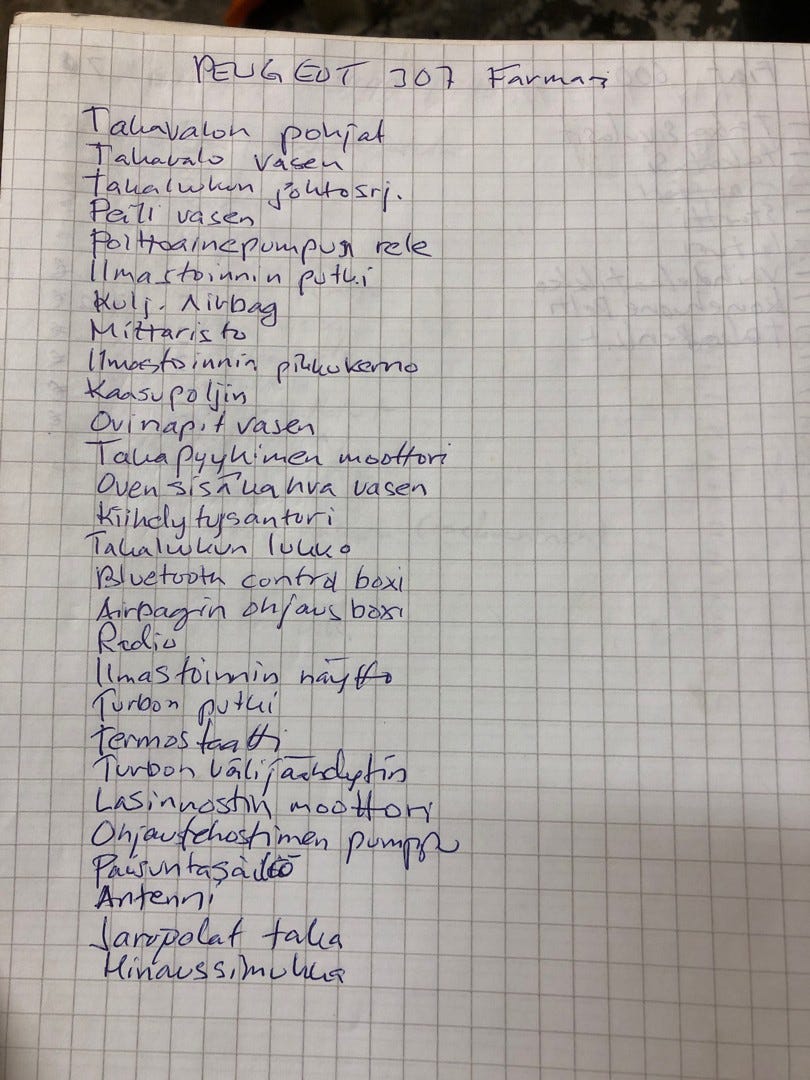 PEUGEOT 307 Farmari
Takavalon pohjat
Takavalo vasen
Takalukun johtosrj.
Peili vasen
Polttoainepumpun rele
Ilmastoinnin putki
Kulj. Airbag
Mittaristo
Ilmastoinnin pikkukenno
Kaasupoljin
Ovinapit vasen
Takapyyhimen moottori
Oven sisäkahva vasen
Kiihdytysanturi
Takalukun lukko
Bluetooth control boxi
Airpagin ohjaus boxi
Radio
Ilmastoinnin näyttö
Turbon putki
Termostaatti
Turbon välijäähdytin
Lasinnostin moottori
Ohjaustehostimen pumppu
Paisuntasäiliö
Antenni
Jarrupalat taka
Hinaussilmukka